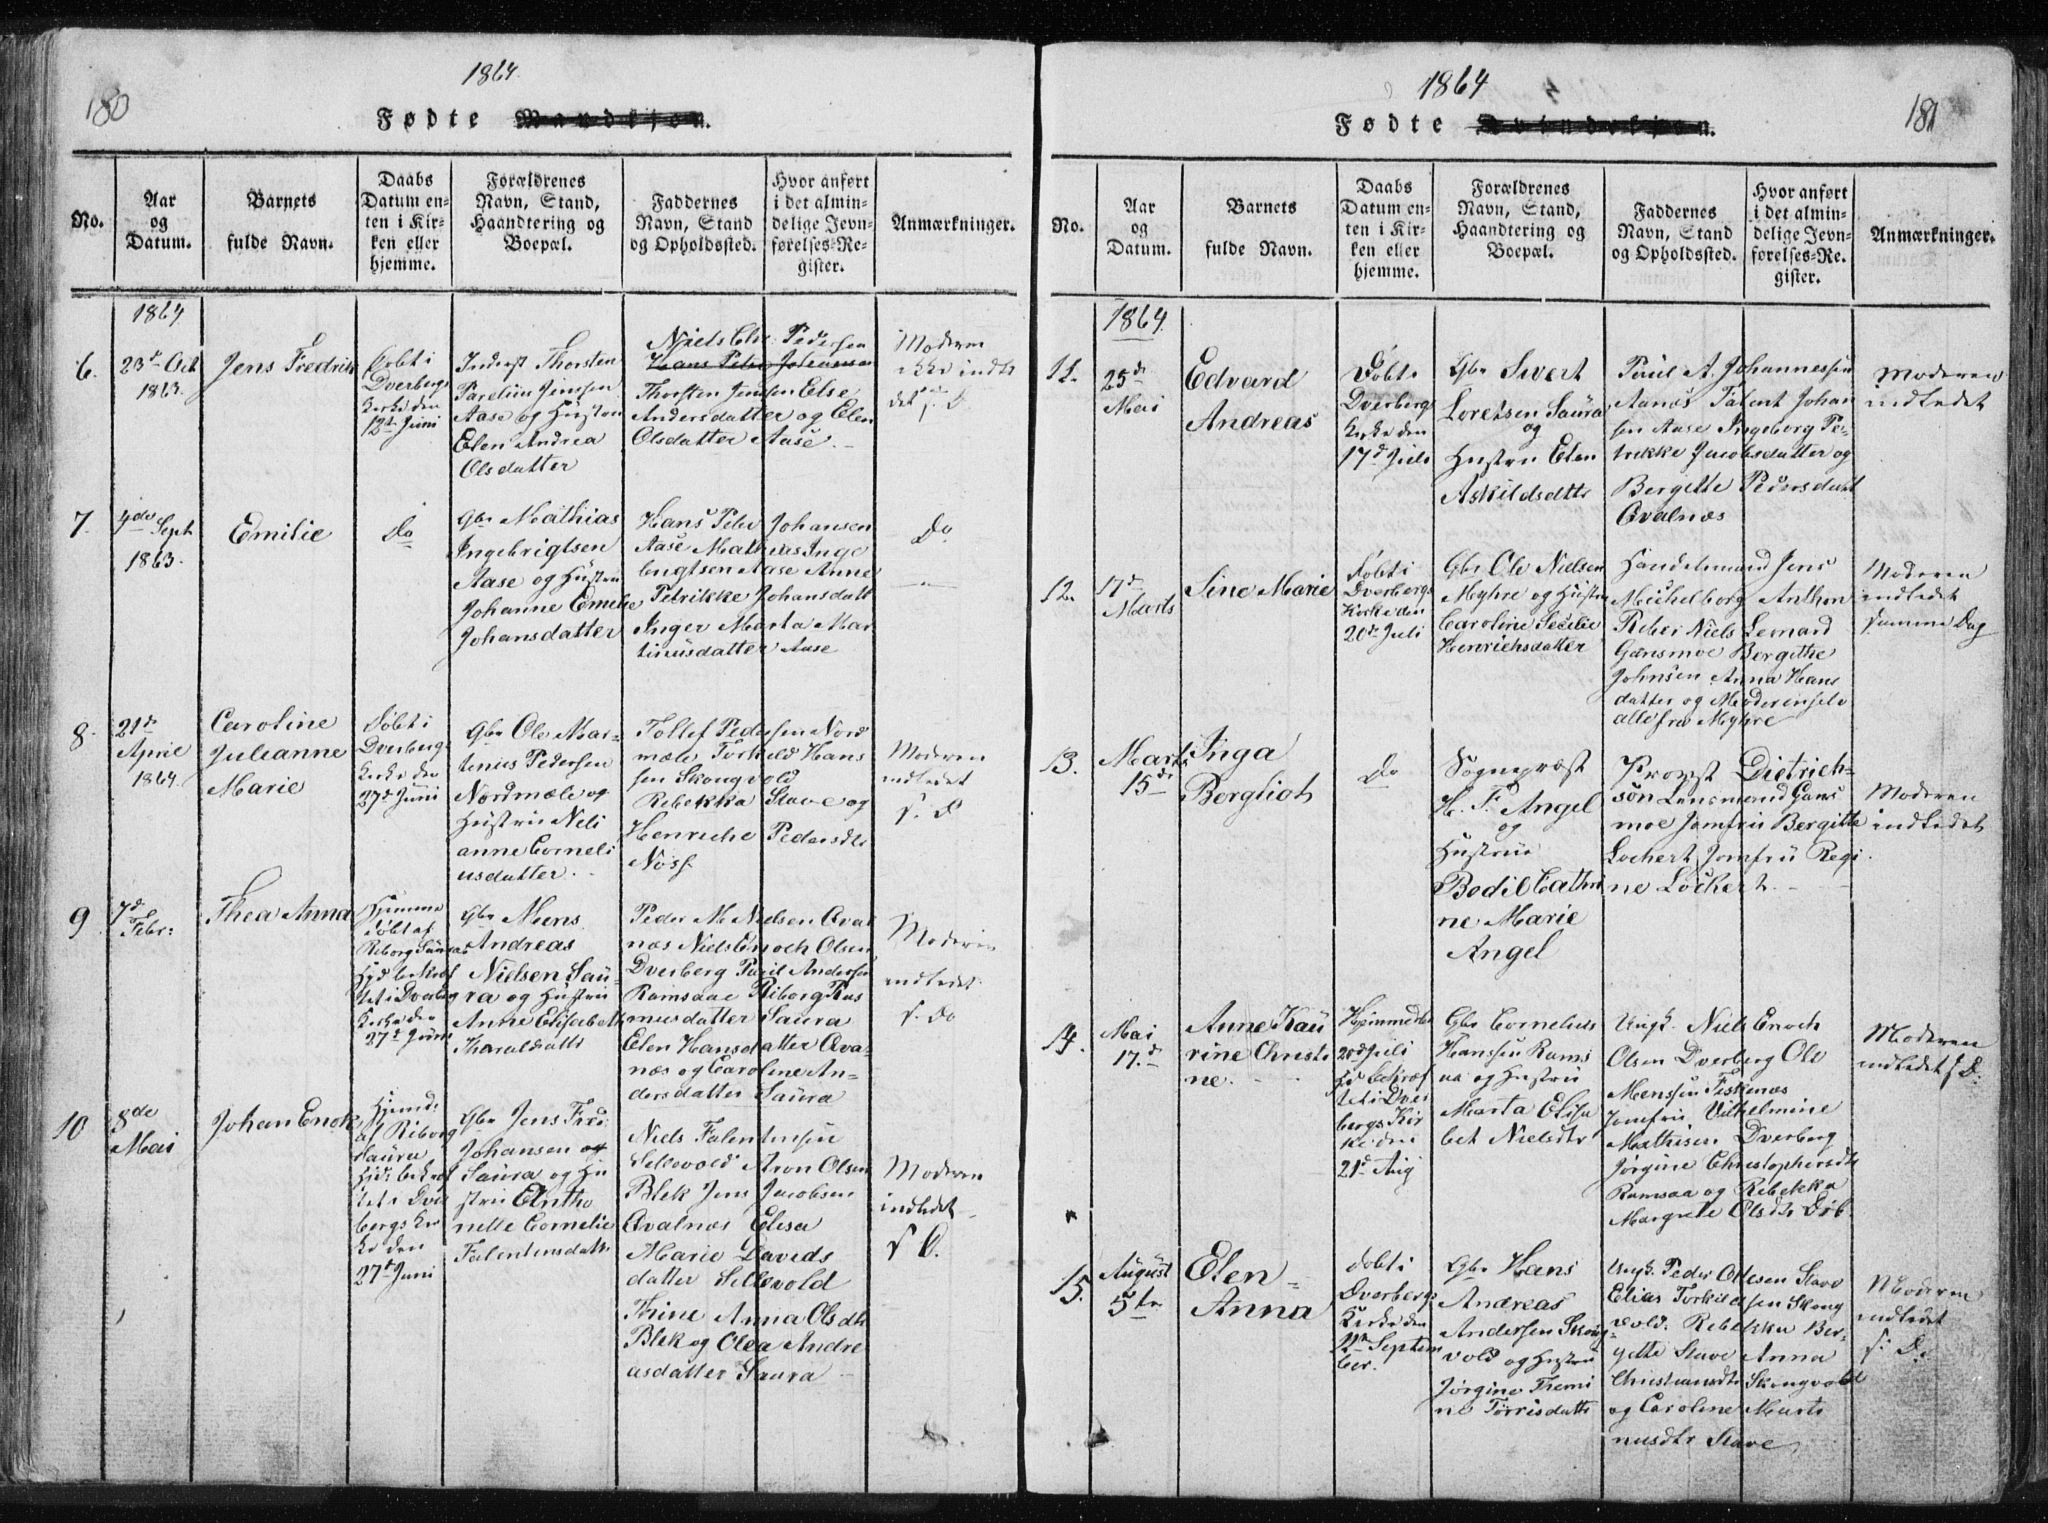 180
1864
Fødte Mandkjøn.
No.
Aar
og
Datum.
Barnets
fulde Navn.
Daabs
Datum en-
ten i Kir-
ken eller
hjemme.
Forældrenes
Navn, Stand,
Haandtering og
Boepæl.
Faddernes
Navn, Stand
og Opholdssted.
Hvor anført
i det almin-
delige Jevn-
førelses-Re-
gister.
Anmærkninger.
1864
6.
23de Oct
1863.
Jens Fredrik
Døbt i
Dverbergs
Kirke den
12te Juni
Inderst Thorsten
Parelius Jensen
Aase og Hustru
Elen Andrea
Olsdatter
Niels Chr Pedersen
Hans Peter Johansen
Thorsten Jensen Else
Andersdatter og Elen
Olsdatter Aase.
Moderen
ikke indle
det s. D
7.
4de Sept
1863.
Emilie
Do
Gbr Mathias
Ingebrigtsen
Aase og Hustru
Johanne Emelie
Johansdatter
Hans Peter Johansen
Aase Mathias Inge
brigtsen Aase Anne
Petrikke Johansdatt
Inger Marta Mar
tinusdatter Aase
Do
8.
21de
April
1864
Caroline
Julianne
Marie
Døbt i
Dverbergs
Kirke den
27de Juni
Gbr Ole Mar-
tinus Pedersen
Nordmæle og
Hustru Neli
anne Corneli
usdatter.
Tollef Pedersen Nord
mæle Torkild Hans
sen Skongvold
Rebekka Stave og
Henriche Pedersdtr
Nøss.
Moderen
indledet
s. D
9
7de
Febr:
Thea Anna
Hjemme
døbt af
Riborg Saura
Hjd bekræf
tet i Dverberg
Kirke den
27de Juni
Gbr Mens
Andreas
Nielsen Sau-
ra og Hustru
Anne Elisabeth
Tharaldsdatt
Peder M Nielsen Aval
næs Niels Enoch Olsen
Dverberg Paul Andersen
Ramsaae Riborg Ras
musdatter Saura
Elen Hansdatter Ava-
næs og Caroline An-
dersdatter Saura
Moderen
indledet
s. Do
10
8de
Mai
Johan Enok
Hjemd:
af Riborg
Saura
Hjd: bekræf
tet i Dver
bergs Kir
ke den
27de Juni
Gbr Jens Fred:
Johansen og
Saura og Hu
stru Antho
nette Cornelie
Falentinsdatt
Niels Falentinsen
Sellevold Aron Olsen
Blek Jens Jacobsen
Avalnæs Elisa
Marie Davids
datter Sellevold
Thine Anna Olsdtr
Blek og Olea Andre
asdatter Saura
Moderen
indledet
s D.
1864
181
Fødte Qvindekjøn.
No.
Aar
og
Datum.
Barnets
fulde Navn.
Daabs
Datum en-
ten i Kir-
ken eller
hjemme.
Forældrenes
Navn, Stand,
Haandtering og
Boepæl.
Faddernes
Navn, Stand
og Opholdssted.
Hvor anført
i det almin-
delige Jevn-
førelses-Re-
gister.
Anmærkninger.
1864
11.
25de
Mai
Edvard
Andreas
Døbt i
Dverbergs
Kirke den
17de Juli
Gbr Sivert
Loretsen Saura
og
Hustru Elen
Askildsdtr
Paul A. Johannessen
Aanøs Falent Johan
sen Aase Ingeborg Pe-
trikke Jacobsdatter og
Bergitte Pedersdatt
Avalnæs
Moderen
indledet
12.
17de
Marts
Sine Marie
Døbt i
Dverbergs
Kirke den
20de Juli
Gbr Ole Nielsen
Myhre og Hustru
Caroline Secilie
Henrichsdatter
Handelsmand Jens
Michelborg Anthon
Riber Niels Lemard
Gansmoe Bergithe
Johnsen Anna Hans
datter og Moderen selv
alle fra Myhre
Moderen
indledet
samme Dag
13.
Marts
15de
Inga
Bergliot
Do
Sognepræst
H. F. Angel
og
Hustrue
Bodil Cathri
ne Marie
Angel
Provst Dietrich-
son Lensmand Gans
moe Jomfru Bergitte
Lochert Jomfru Regi
ne Lockert
Moderen
indledet
14.
Mai
17.de
Anne Kau
rine Christi
ne.
Hjemmedøbt
20de Juli
bekræf
tet i Dver
bergs Kir
ke den
21de Aug
Gbr Cornelius
Hanssen Rams
aa og Hustru
Marta Elisa
bet Nielsdtr
Ungk. Niels Enoch
Olsen Dverberg Ole
Menssen Fiskenæs
Jomfru Vilhelmine
Mathisen Dverberg
Jørgine Christophersdtr
Ramsaa og Rebekka
Margrete Olsdtr Dvb.
Moderen
indledet s D.
15.
August
5te
Elen
Anna
Døbt i
Dverbergs
Kirke den
Septem
ber.
Gbr Hans
Andreas
Andersen Skong
vold og Hustru
Jørgine Themi
ne Tørrisdattr
Ungk. Peder Ottesen Stave
Elias Torkildsen Skong
vold. Rebekka Ber-
gitte Stave Anna
Christiansdtr Skongvold
og Caroline Marti
nusdtr Stave
Moderen
indledet
s. D.